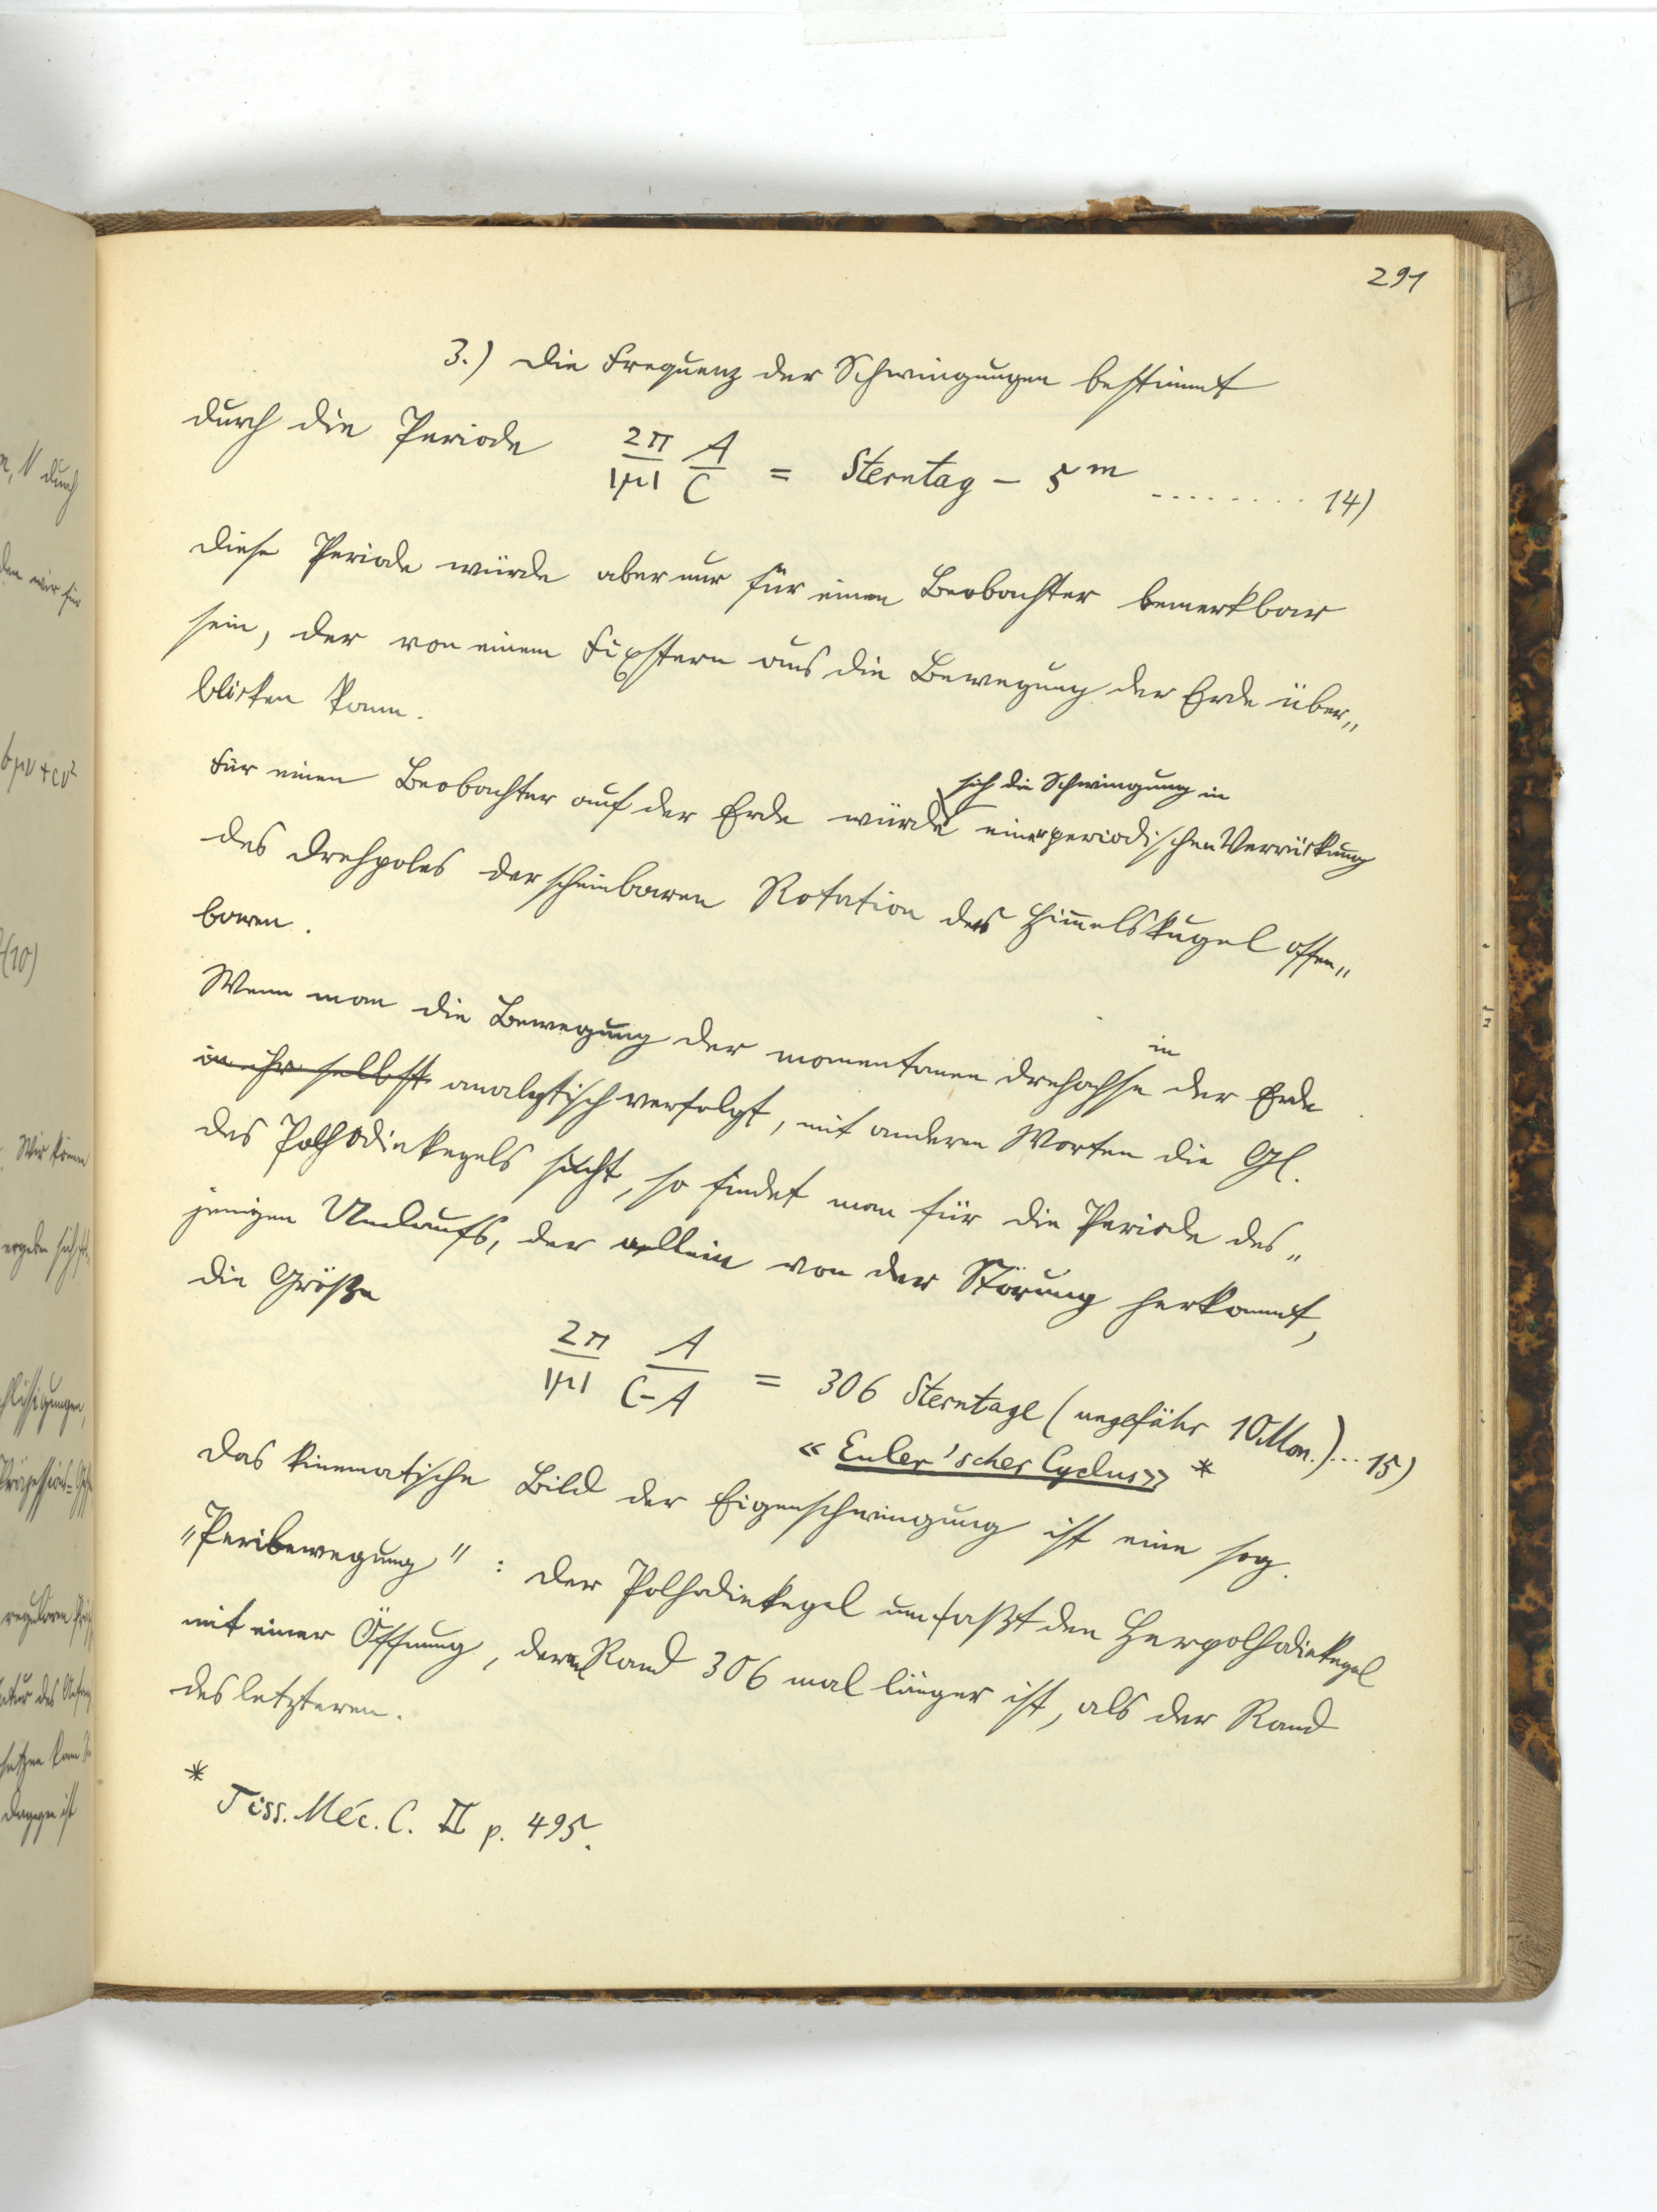 291
3.) Die Frequenz der Schwingungen bestimmt
durch die Periode 2π/|μ| A/C = Sterntag – 5m ........ 14)
Diese Periode würde aber nur für einen Beobachter bemerkbar
sein, der von einem Fixstern aus die Bewegung der Erde über„
blicken kann.
sich die Schwingung in
Für einen Beobachter auf der Erde würde einer periodischen Verrückung
des Drehpoles der scheinbaren Rotation der Himmelskugel offen„
baren.
Wenn man die Bewegung der momentanen Drehachse in der Erde
in ihr selbst analytisch verfolgt, mit anderen Worten die Gl.
des Polhodiekegels sucht, so findet man für die Periode des„
jenigen Umlaufs, der allein von der Störung herkommt,
die Größe
2π/|μ| A/(C–A) = 306 Sterntage (ungefähr 10 Mon.)... 15)
« Euler'scher Cyclus» *
Das kinematische Bild der Eigenschwingung ist eine sog.
"Peribewegung" : Der Polhodiekegel umfaßt den Herpolhodiekegel
mit einer Öffnung, deren Rand 306 mal länger ist, als der Rand
des letzteren.
* Tiss. Méc. C. II p. 495.
n, N durch
den wir für
bμν + cν²
(10)
Wir können
ergeben sich
regulären
dagegen ist